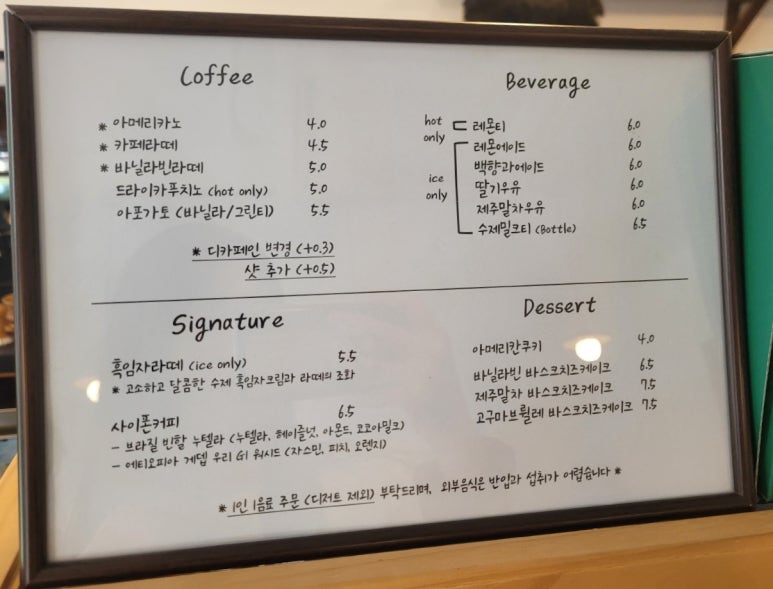 Coffee
* 아메리카노 4.0
* 카페라떼 4.5
* 바닐라빈라떼 5.0
드라이카푸치노 (hot only) 5.0
아포가토 (바닐라/그린티) 5.5
* 디카페인 변경 (+0.3)
샷 추가 (+0.5)
Beverage
hot only
레몬티 6.0
ice only
레몬에이드 6.0
백향과에이드 6.0
딸기우유 6.0
제주말차우유 6.0
수제밀크티 (Bottle) 6.5
Signature
흑임자라떼 (ice only) 5.5
* 고소하고 달콤한 수제 흑임자크림과 라떼의 조화
사이폰커피 6.5
- 브라질 빈할 누텔라 (누텔라, 헤이즐넛, 아몬드, 코코아밀크)
- 에티오피아 게뎁 우리 G1 워시드 (자스민, 피치, 오렌지)
Dessert
아메리칸쿠키 4.0
바닐라빈 바스크치즈케이크 6.5
제주말차 바스크치즈케이크 7.5
고구마브륄레 바스크치즈케이크 7.5
* 1인 1음료 주문 (디저트 제외) 부탁드리며, 외부음식은 반입과 섭취가 어렵습니다 *